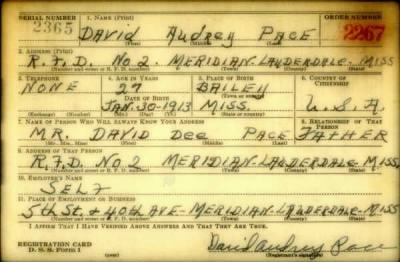 SERIAL NUMBER 1. NAME (Print) ORDER NUMBER
2365 DAVID Audrey PACE 2267
(First) (Middle) (Last)
2. ADDRESS (Print)
R.F.D. No 2. MERIDIAN-LAUDERDALE-MISS
(Number and street or R. F. D. number) (Town) (County) (State)
3. TELEPHONE 4. AGE IN YEARS 5. PLACE OF BIRTH 6. COUNTRY OF CITIZENSHIP
NONE 27 BAILEY
DATE OF BIRTH (Town or county)
JAN-30-1913 MISS. U.S.A.
(Exchange) (Number) (Mo.) (Day) (Yr.) (State or country)
7. NAME OF PERSON WHO WILL ALWAYS KNOW YOUR ADDRESS 8. RELATIONSHIP OF THAT PERSON
MR. DAVID Dee PACE FATHER
(Mr., Mrs., Miss) (First) (Middle) (Last)
9. ADDRESS OF THAT PERSON
R.F.D. No 2 MERIDIAN-LAUDERDALE-MISS
(Number and street or R. F. D. number) (Town) (County) (State)
10. EMPLOYER'S NAME
SELF
11. PLACE OF EMPLOYMENT OR BUSINESS
5th St. & 40th AVE-MERIDIAN-LAUDERDALE-MISS
(Number and street or R. F. D. number) (Town) (County) (State)
I AFFIRM THAT I HAVE VERIFIED ABOVE ANSWERS AND THAT THEY ARE TRUE.
REGISTRATION CARD David Audrey Pace
D. S. S. Form 1 (Registrant's signature)